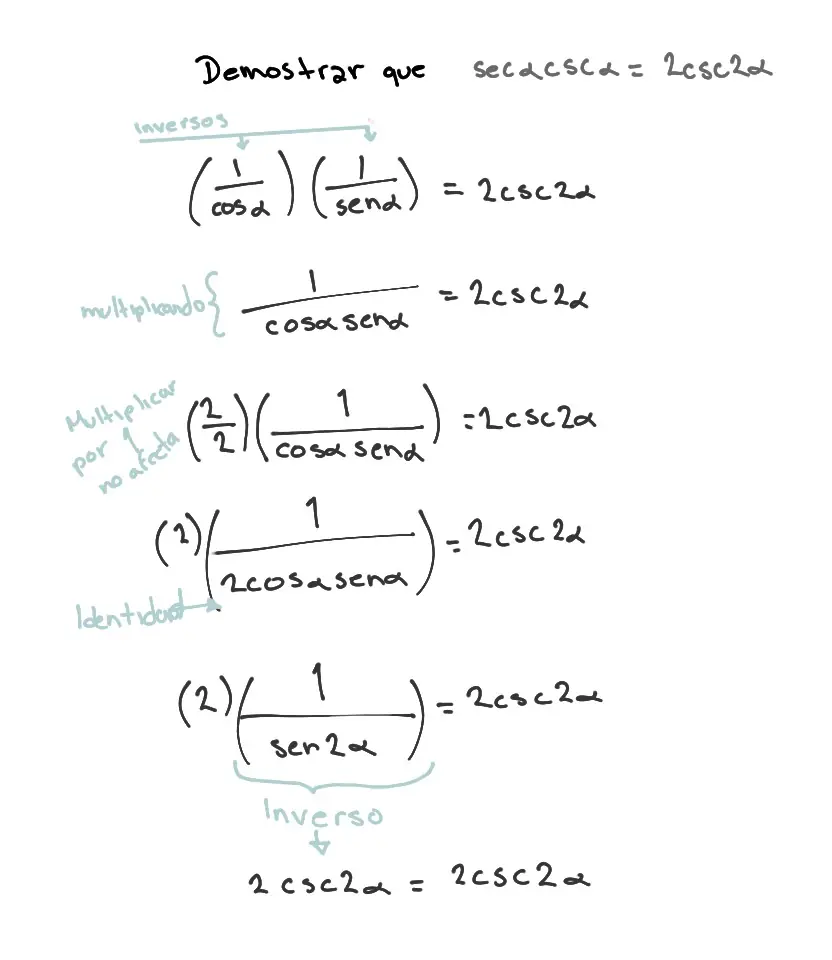 Demostrar que secαcscα = 2csc2α
Inversos
(1/cosα)(1/senα) = 2csc2α
multiplicando{ 1/cosα senα = 2csc2α
Multiplicar por 1 no afecta (2/2)(1/cosα senα) = 2csc2α
(2)(1/2cosα senα) = 2csc2α
Identidad
(2)(1/sen2α) = 2csc2α
Inverso
2csc2α = 2csc2α